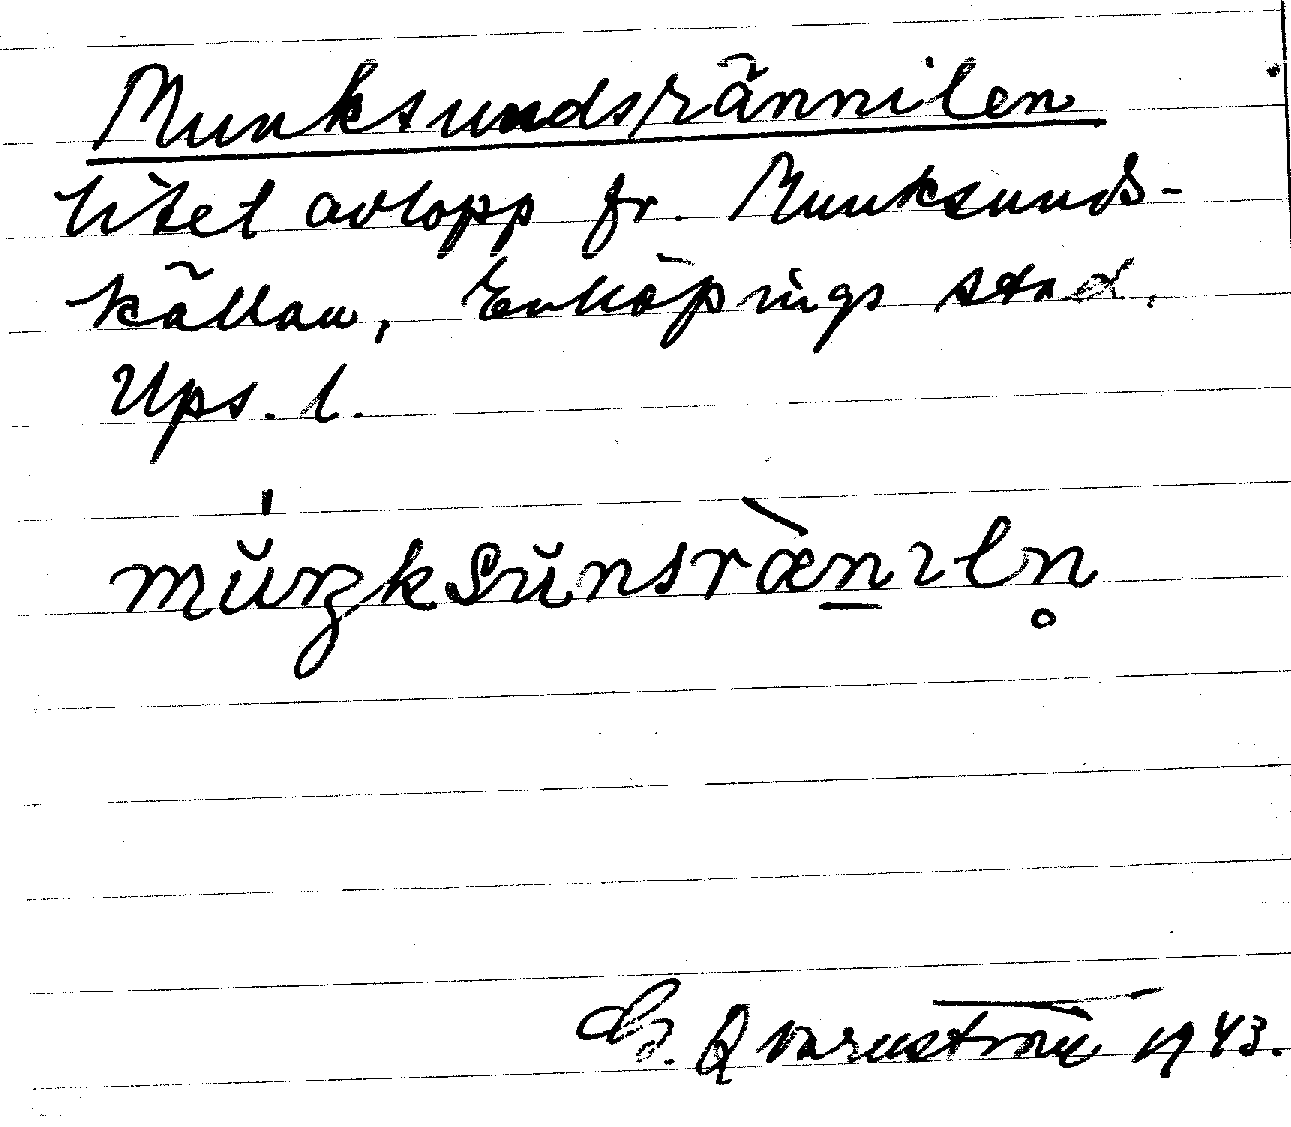 Munksundsrännilen
litet avlopp fr. Munksunds-
källan, Enköpings stad,
Ups. l.
mu̇ŋksŭnsræ̀n̲ɪln̥
G. Qvarnström 1943.